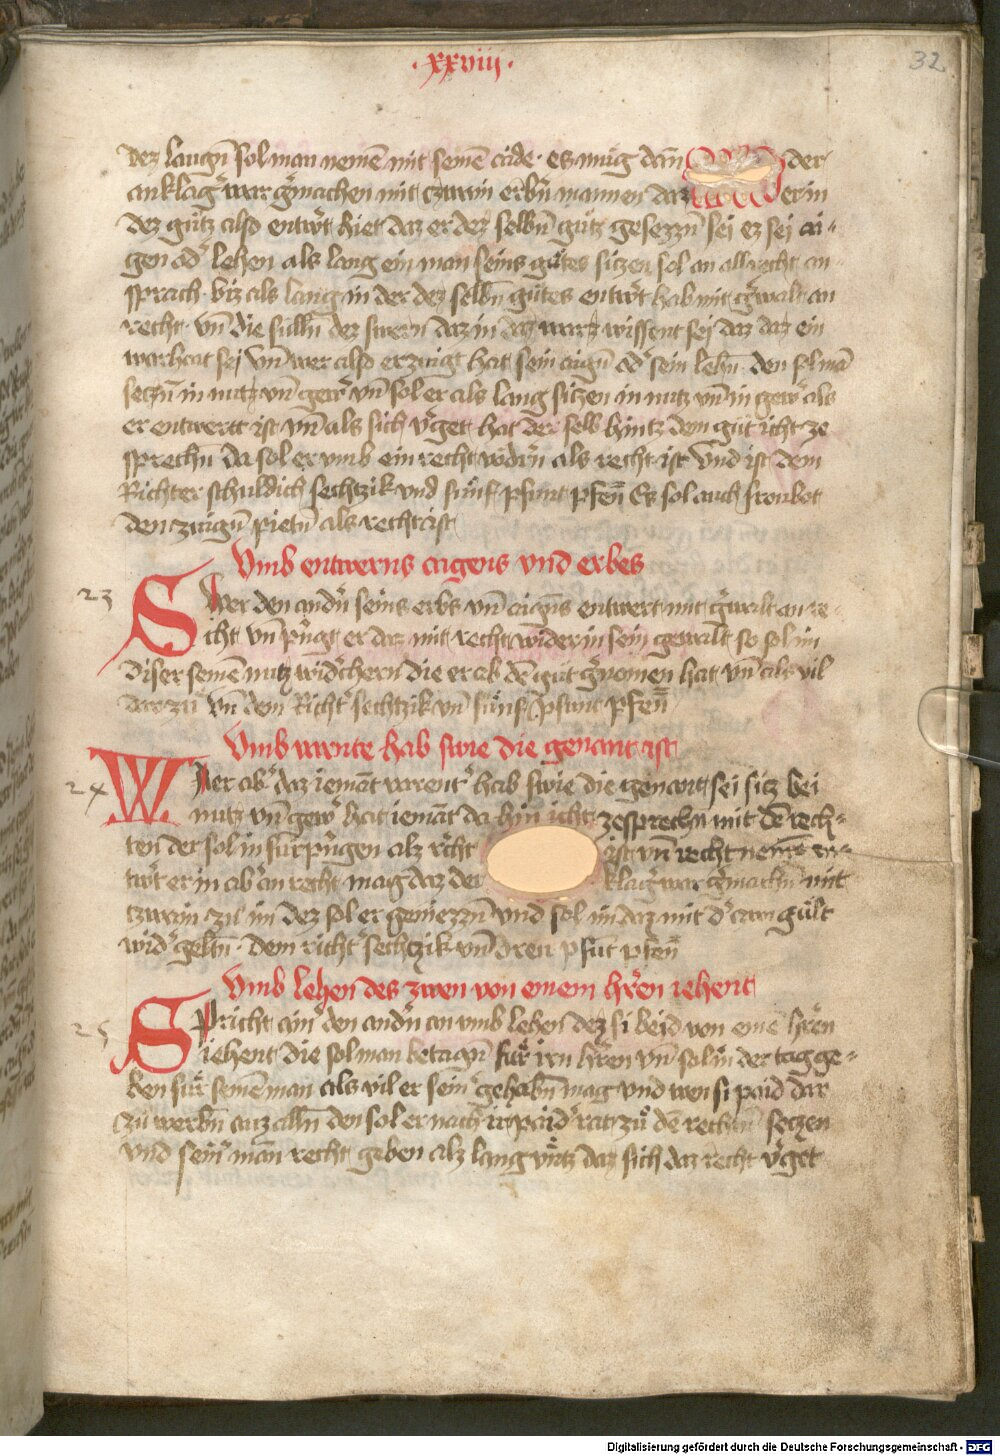 · xxviii ·
32
Dez laugn̄ sol man nemē mit seinē aide · es mug dān der
anklag̾ war g̾machen mit czwain erb̾n mannen daz er in
dez gutz also entw̾t hiet daz er dez selbn̄ gutz gesezzn̄ sei ez sei ai-
gen od̾ lehen als lang ein man seins gutes siczen sol an all recht an-
sprach · biz als lang in der dez selbn̄ gutes entw̾t hab mit g̾walt an
recht · vn̄ die sulln̄ dez swern daz in daz war wissent sei daz daz ein
warhait sei vn̄ wer also erzaigt hat sein aign̄ od̾ sein lehn̄ · den sol mā
seczn̄ in nutz vn̄ gew̾ vn̄ sol er als lang siczen in nutz vn̄ in gew̾ als
er entwert ist vn̄ als sich v̾get · hat der selb hintz dem gut icht ze
sprechn̄ da sol er vmb ein recht vod̾rn als recht ist vnd ist dem
Richter schuldich sechtzik vnd funf pfunt pfen̄ Es sol auch fronbot
den zwign̄ pietn̄ als recht ist
Vmb entwerns aigens vnd erbes
23
Swer den and̾n seins erbs vn̄ aigns entwert mit g̾walt an re-
cht vn̄ p̾ngt er daz mit recht wider in sein gewalt so sol im
diser seinē nutz wid̾chern die er ab dē gut g̾nomen hat vn̄ als vil
darzu vn̄ dem Richt̾ sechtzik vn̄ funf pfunt pfen̄
Vmb varnte hab swie die genant ist
24
Wer ab̾ daz iemāt varent̾ hab swie die genant sei sitz bei
nutz vn̄ gew̾ hat iemāt da hin icht zesprechn̄ mit dē rech-
ten der sol in furp̾ngen alz r̾cht est vn̄ recht nemē en-
tw̾t er in ab̾ an recht mag daz der klag̾ war g̾machn̄ mit
tzwain zu im dez sol er geniezzn̄ vnd sol im daz mit d̾ zwigult
wid̾ geltn̄ · dem richt̾ sechczik vn̄ dreu pfūt pfen̄
Vmb lehen des zwen von einem h̾ren iehent
25
Spricht ain̾ den and̾n an vmb lehen dez si beid von eine h̾ren
iehent die sol man betagn̄ fur irn h̾ren vn̄ sol in der tag ge-
ben fur seinē man als vil er sein̾ gehabn̄ mag vnd wen si paid dar
zu werbn̄ auz alln̄ den sol er nach ir paid̾ rat zu dē rechtn̄ seczen
vnd sein̾ man recht geben alz lang vntz daz sich daz recht v̾get
Digitalisierung gefördert durch die Deutsche Forschungsgemeinschaft - DFG